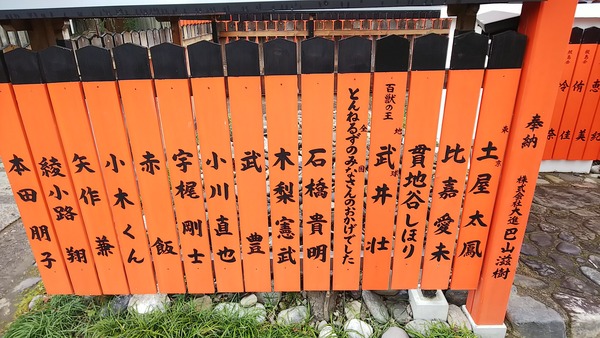 奉納 株式会社大進 巴山滋樹
東京 土屋太鳳
比嘉愛未
貫地谷しほり
百獣の王 地球 武井壮
全国 とんねるずのみなさんのおかげでした
石橋貴明
木梨憲武
武豊
小川直也
宇梶剛士
赤飯
小木くん
矢作兼
綾小路翔
本田朋子